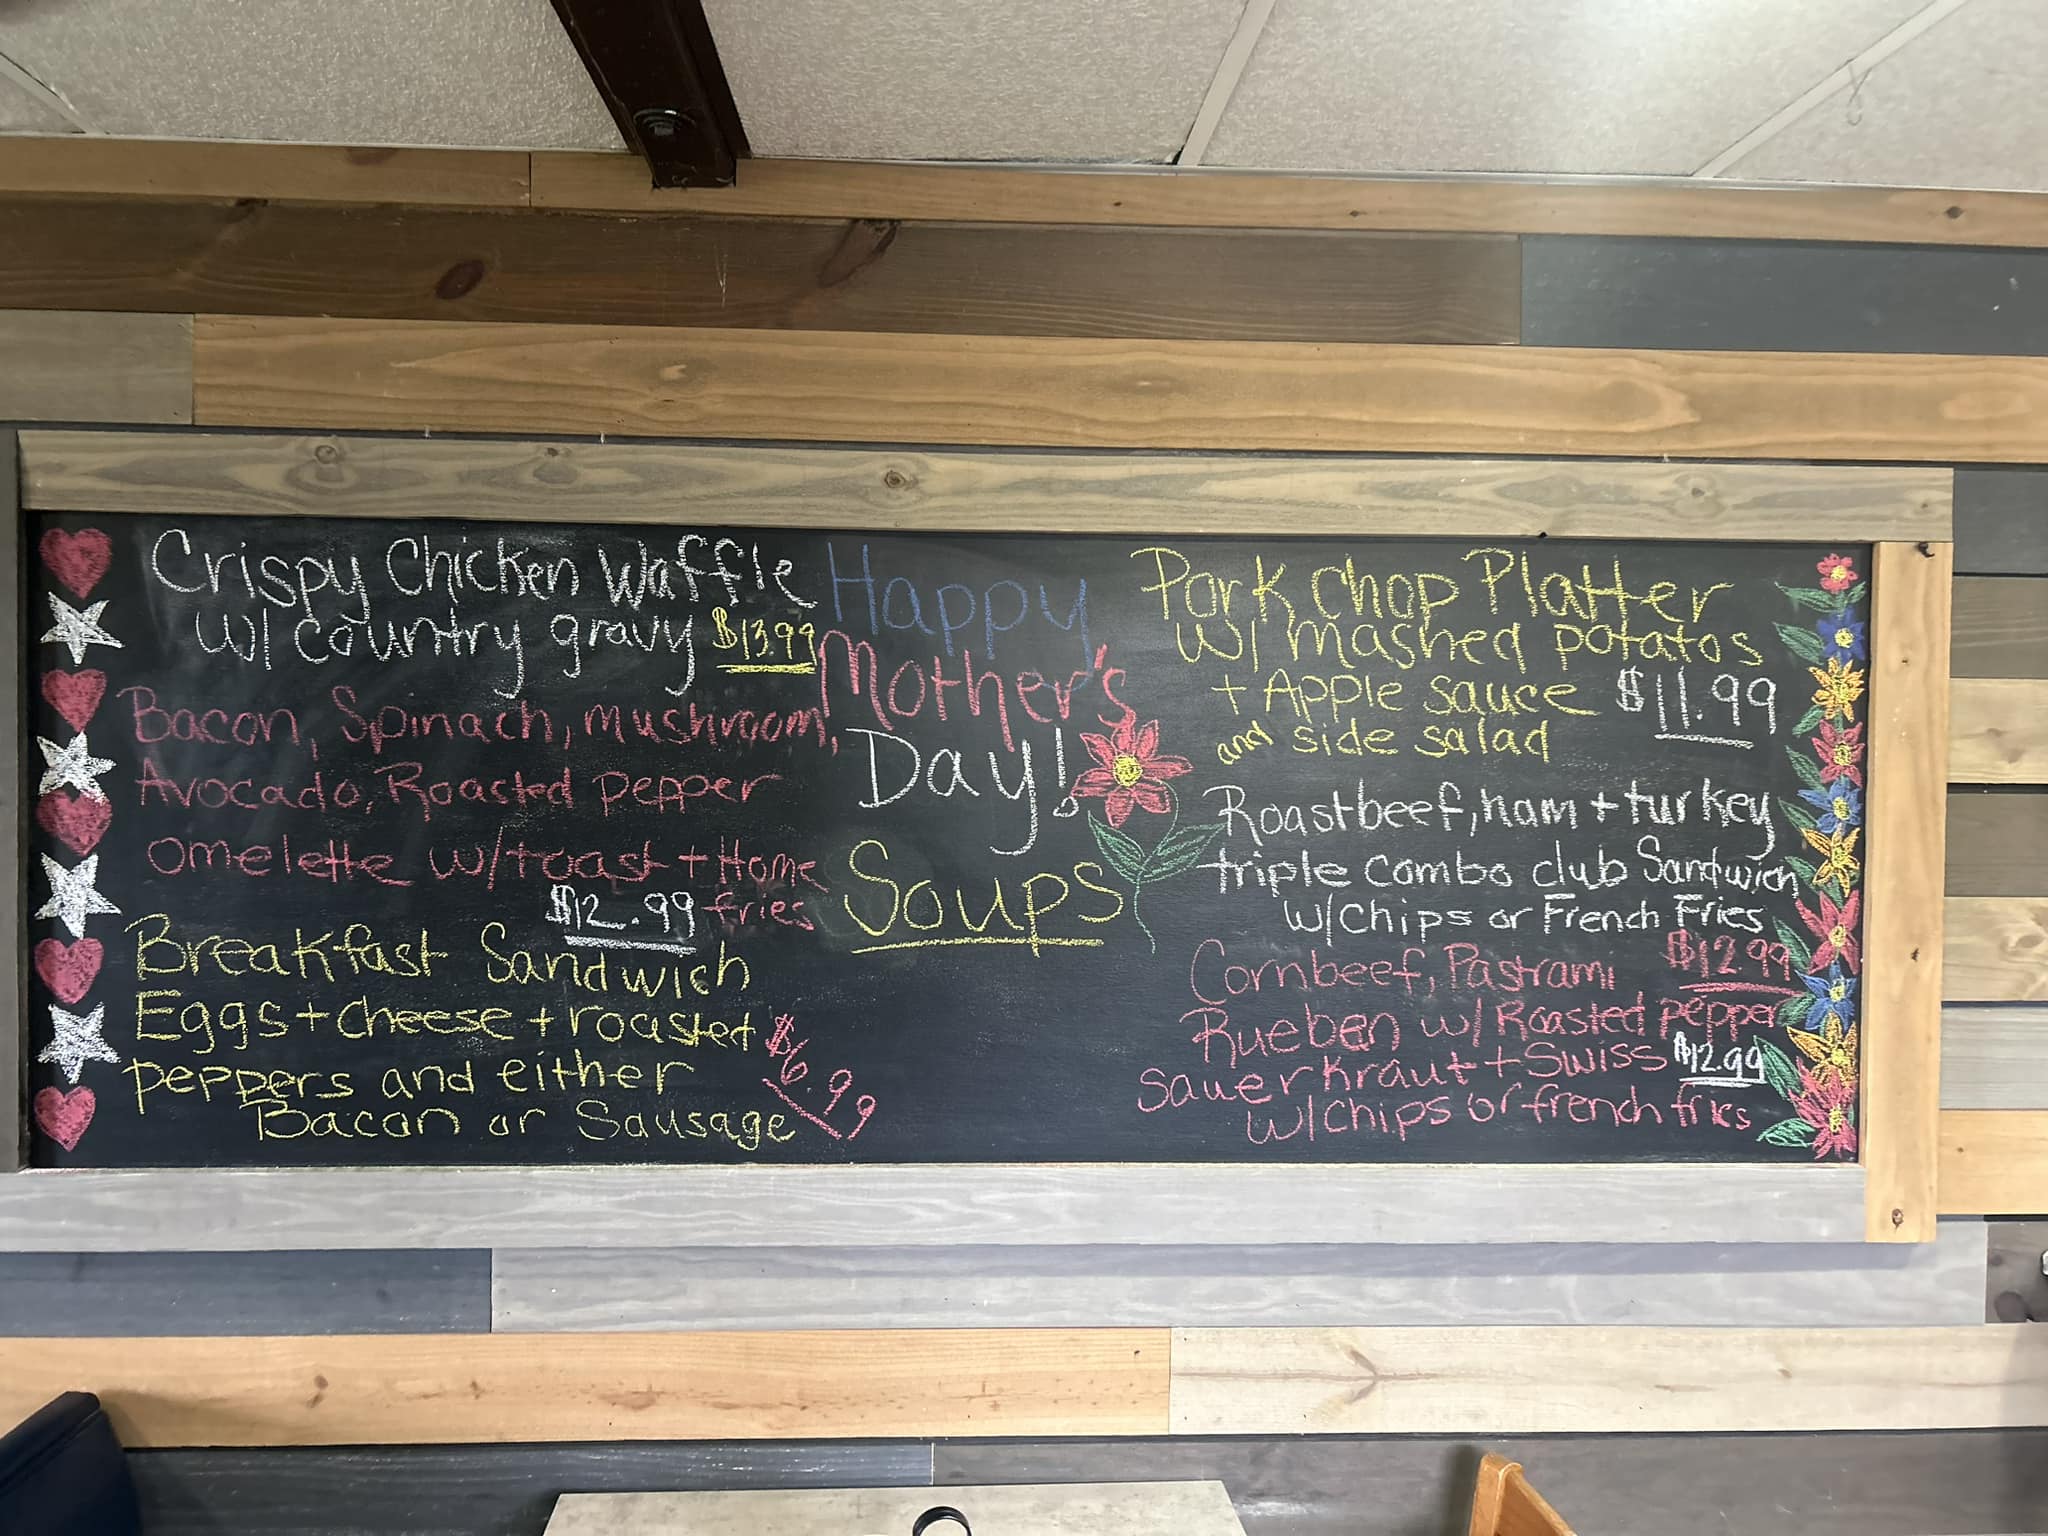 Crispy Chicken Waffle
w/ country gravy $13.99
Bacon, Spinach, mushroom,
Avocado, Roasted pepper
omelette w/toast + Home
$12.99 fries
Breakfast Sandwich
Eggs + cheese + roasted
peppers and either
Bacon or Sausage
$6.99
Happy
Mother's
Day!
Soups
Pork chop Platter
w/ mashed potatos
+ Apple sauce $11.99
and side salad
Roastbeef, ham + turkey
triple combo club Sandwich
w/chips or French Fries
$12.99
Cornbeef, Pastrami
Rueben w/ Roasted pepper
Sauerkraut + Swiss $12.99
w/chips or french fries